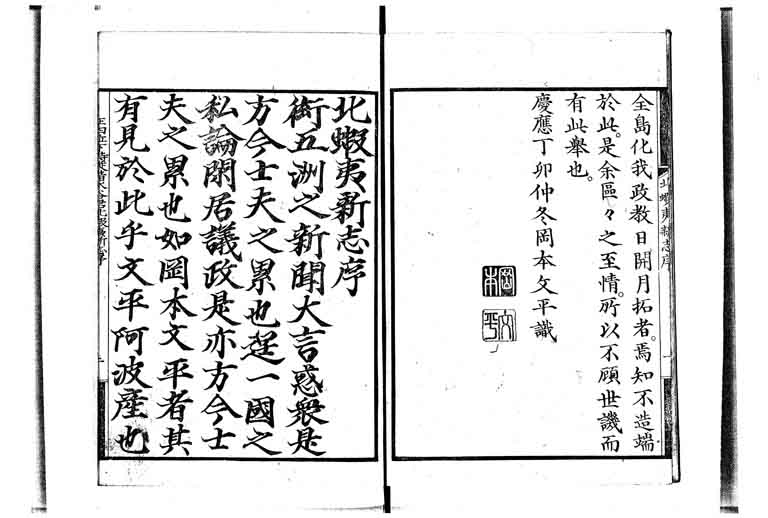 全島化我政教日開月拓者。焉知不造端
於此。是余區々之至情。所以不顧世譏而
有此舉也。
慶應丁卯仲冬岡本文平識
岡本
文平
北蝦夷新志序
北蝦夷新志序
衒五洲之新聞大言惑衆是
方今士夫之累也逞一國之
私論閑居議政是亦方今士
夫之累也如岡本文平者其
有見於此乎文平阿波產也